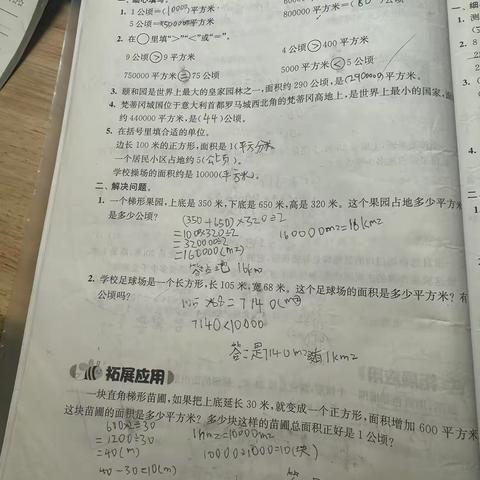 一、细心填写。
1. 1公顷=(10000)平方米
800000平方米=(80
5公顷=(50000)平方米
2. 在○里填“>”“<”或“=”。
9公顷>9平方米 4公顷>400平方米
750000平方米=75公顷 5000平方米<5公顷
3. 颐和园是世界上最大的皇家园林之一,面积约290公顷,是(2900000)平方米。
4. 梵蒂冈城国位于意大利首都罗马城西北角的梵蒂冈高地上,是世界上最小的国家,面
约440000平方米,是(44)公顷。
5. 在括号里填合适的单位。
边长100米的正方形,面积是1(平方分米
一个居民小区占地约5(公顷)。
学校操场的面积约是10000(平方米)。
二、解决问题。
1. 一个梯形果园,上底是350米,下底是650米,高是320米。这个果园占地多少平方米
是多少公顷?
(350+650)×320÷2
=1000×320÷2
=320000÷2
=160000(m2)
160000m2=16km2
2. 学校足球场是一个长方形,长105米,宽68米。这个足球场的面积是多少平方米?有
公顷吗?
105×68=7140(m2)
7140<10000
答:是7140m2 1km2
拓展应用
一块直角梯形苗圃,如果把上底延长30米,就变成一个正方形,面积增加600平方米
这块苗圃的面积是多少平方米?多少块这样的苗圃总面积正好是1公顷?
600×2÷30
=1200÷30
=40(m)
40-30=10(m)
1hm2=10000m2
10000÷1000=10(块)